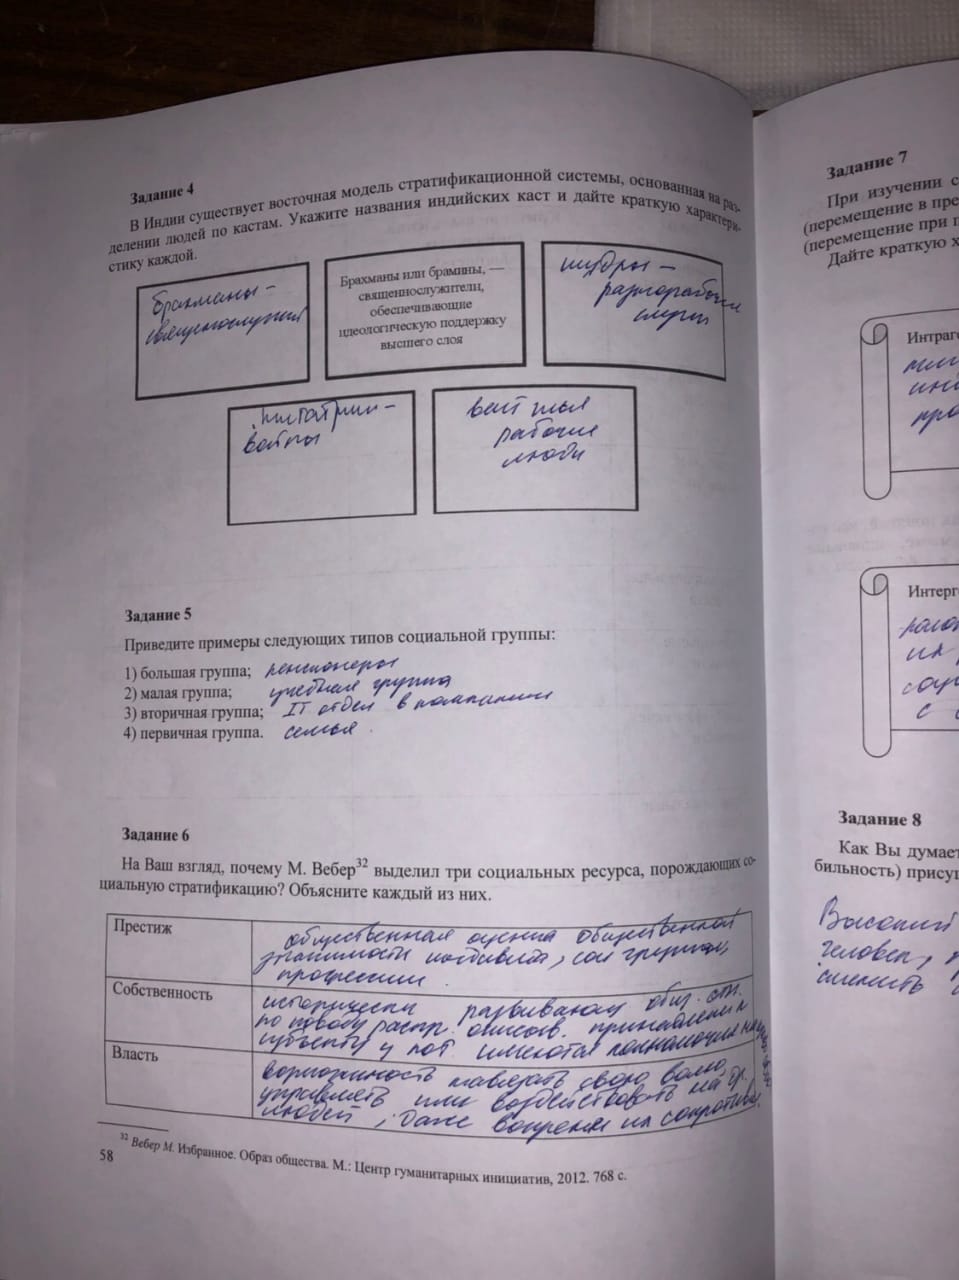 Задание 4
В Индии существует восточная модель стратификационной системы, основанная на раз-
делении людей по кастам. Укажите названия индийских каст и дайте краткую характери-
стику каждой.
брахманы -
священнослужит
Брахманы или брамины, —
священнослужители,
обеспечивающие
идеологическую поддержку
высшего слоя
шудры -
разнорабочие
слуги
воины
рабочие
люди
Задание 5
Приведите примеры следующих типов социальной группы:
1) большая группа; пенсионеры
2) малая группа; учебная группа
3) вторичная группа; IT отдел в компании
4) первичная группа. семья
Задание 6
На Ваш взгляд, почему М. Вебер32 выделил три социальных ресурса, порождающих со-
циальную стратификацию? Объясните каждый из них.
Престиж
общественная оценка общественной
значимости индивида, соц группы,
профессии
Собственность
исторически развивающ общ. отн.
по поводу распр.
субъекту у кот. имеются полномочия на
Власть
возможность навязать свою волю,
управлять или воздействовать на др.
людей, даже вопреки их сопротивл.
32 Вебер М. Избранное. Образ общества. М.: Центр гуманитарных инициатив, 2012. 768 с.
58
Задание 7
При изучении с
(перемещение в пре
(перемещение при п
Дайте краткую х
Интраг
Интерг
Задание 8
Как Вы думает
бильность) прису
Высокий
человек,
сменить